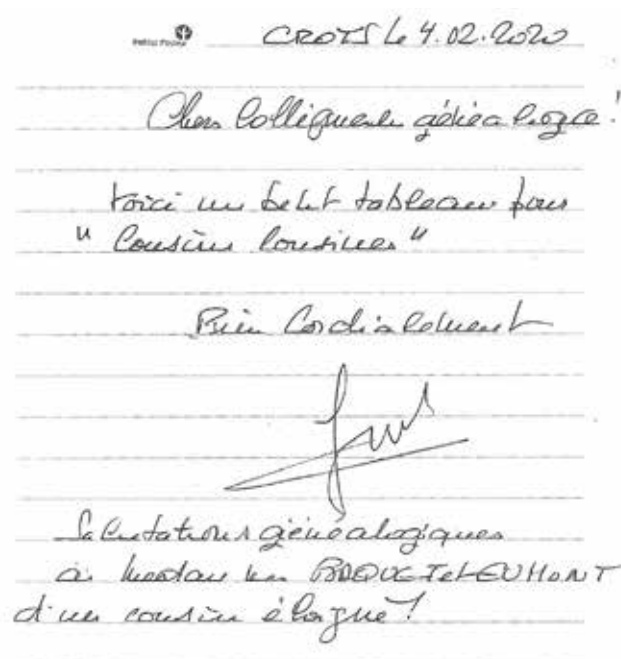 CROTS le 4.02.2020
Chers Collègues de généalogie!
Voici un petit tableau pour
"Cousins Cousines"
Bien Cordialement
Salutations généalogiques
à
d'un cousin éloigné!